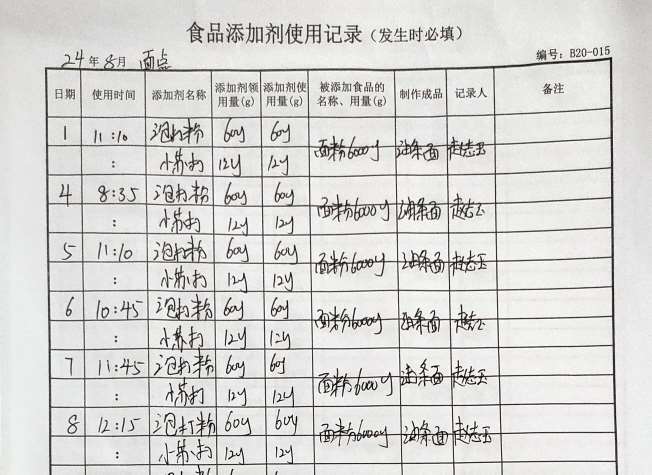 食品添加剂使用记录（发生时必填）
24年8月 面点 编号：B20-015
日期 使用时间 添加剂名称 添加剂领用量(g) 添加剂使用量(g) 被添加食品的名称、用量(g) 制作成品 记录人 备注
1 11:10 泡打粉 60g 60g 面粉6000g 油条面 赵志玉
: 小苏打 12g 12g
4 8:35 泡打粉 60g 60g 面粉6000g 油条面 赵志玉
: 小苏打 12g 12g
5 11:10 泡打粉 60g 60g 面粉6000g 油条面 赵志玉
: 小苏打 12g 12g
6 10:45 泡打粉 60g 60g 面粉6000g 油条面 赵志玉
: 小苏打 12g 12g
7 11:45 泡打粉 60g 60g 面粉6000g 油条面 赵志玉
: 小苏打 12g 12g
8 12:15 泡打粉 60g 60g 面粉6000g 油条面 赵志玉
: 小苏打 12g 12g